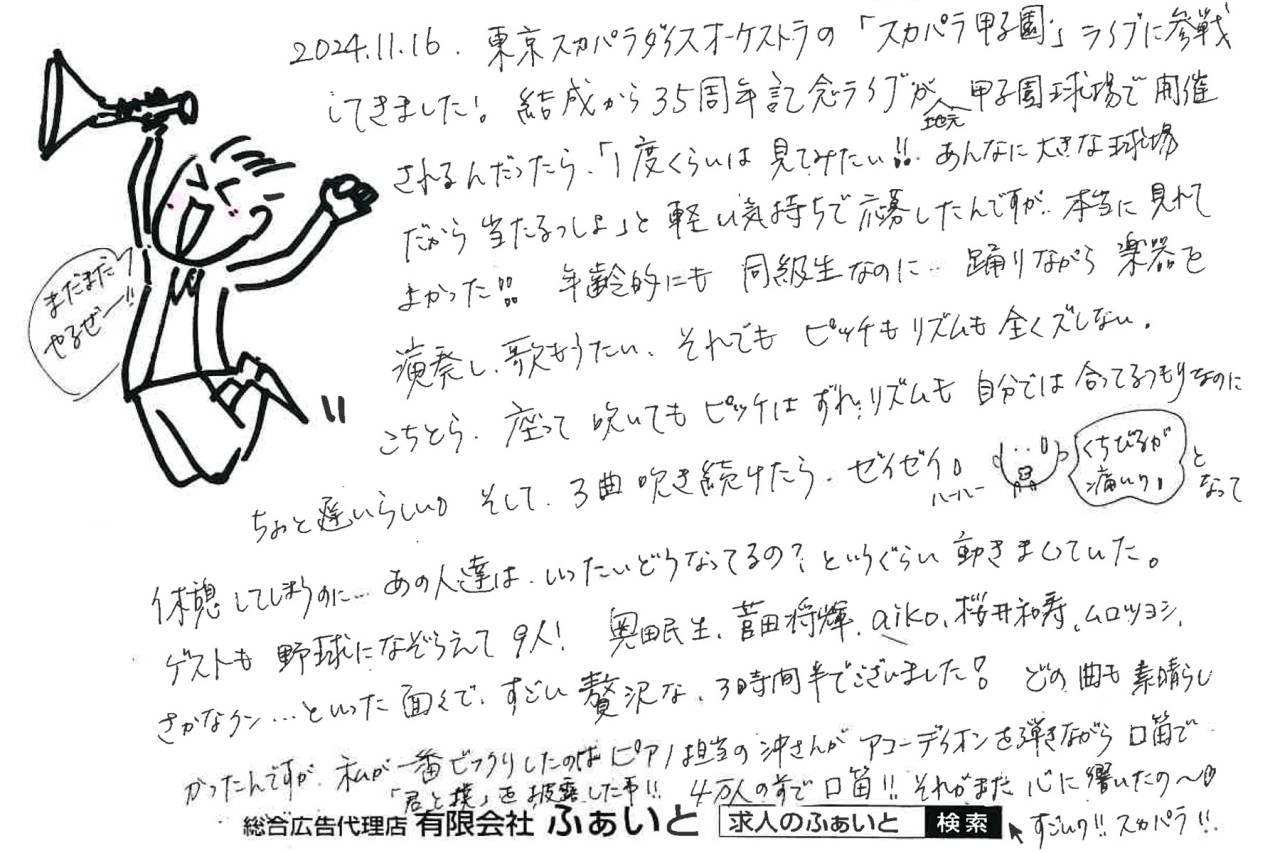 2024.11.16. 東京スカパラダイスオーケストラの「スカパラ甲子園」ライブに参戦
してきました! 結成から35周年記念ライブが 地元 甲子園球場で開催
されるんだったら、「1度くらいは見てみたい!!. あんなに大きな球場
だから当たるっしょ」と軽い気持ちで応募したんですが.. 本当に見れて
よかった!! 年齢的にも同級生なのに… 踊りながら楽器を
演奏し、歌もうたい、それでもピッチもリズムも全くズレない。
こちとら、座って吹いてもピッチはずれ、リズムも自分では合ってるつもりなのに
ちょっと遅いらしい。そして、3曲吹き続けたら、ゼイゼイ。
ハーハー
くちびるが
痛いり。
となって
休憩してしまうのに… あの人達は、いったいどうなってるの?というぐらい動きまくていた。
ゲストも野球になぞらえて9人! 奥田民生、菅田将輝、aiko、桜井和寿、ムロツヨシ、
さかなクン…といった面々で、すごい贅沢な、3時間半でございました! どの曲も素晴らし
かったんですが、私が一番ビックリしたのはピアノ担当の沖さんがアコーディオンを弾きながら口笛で
「君と僕」を披露した事!! 4万人の前で口笛!! それがまた心に響いたの〜
すごいり!! スカパラ!!.
まだまだ
やるぜー!!
総合広告代理店 有限会社 ふぁいと 求人のふぁいと 検索